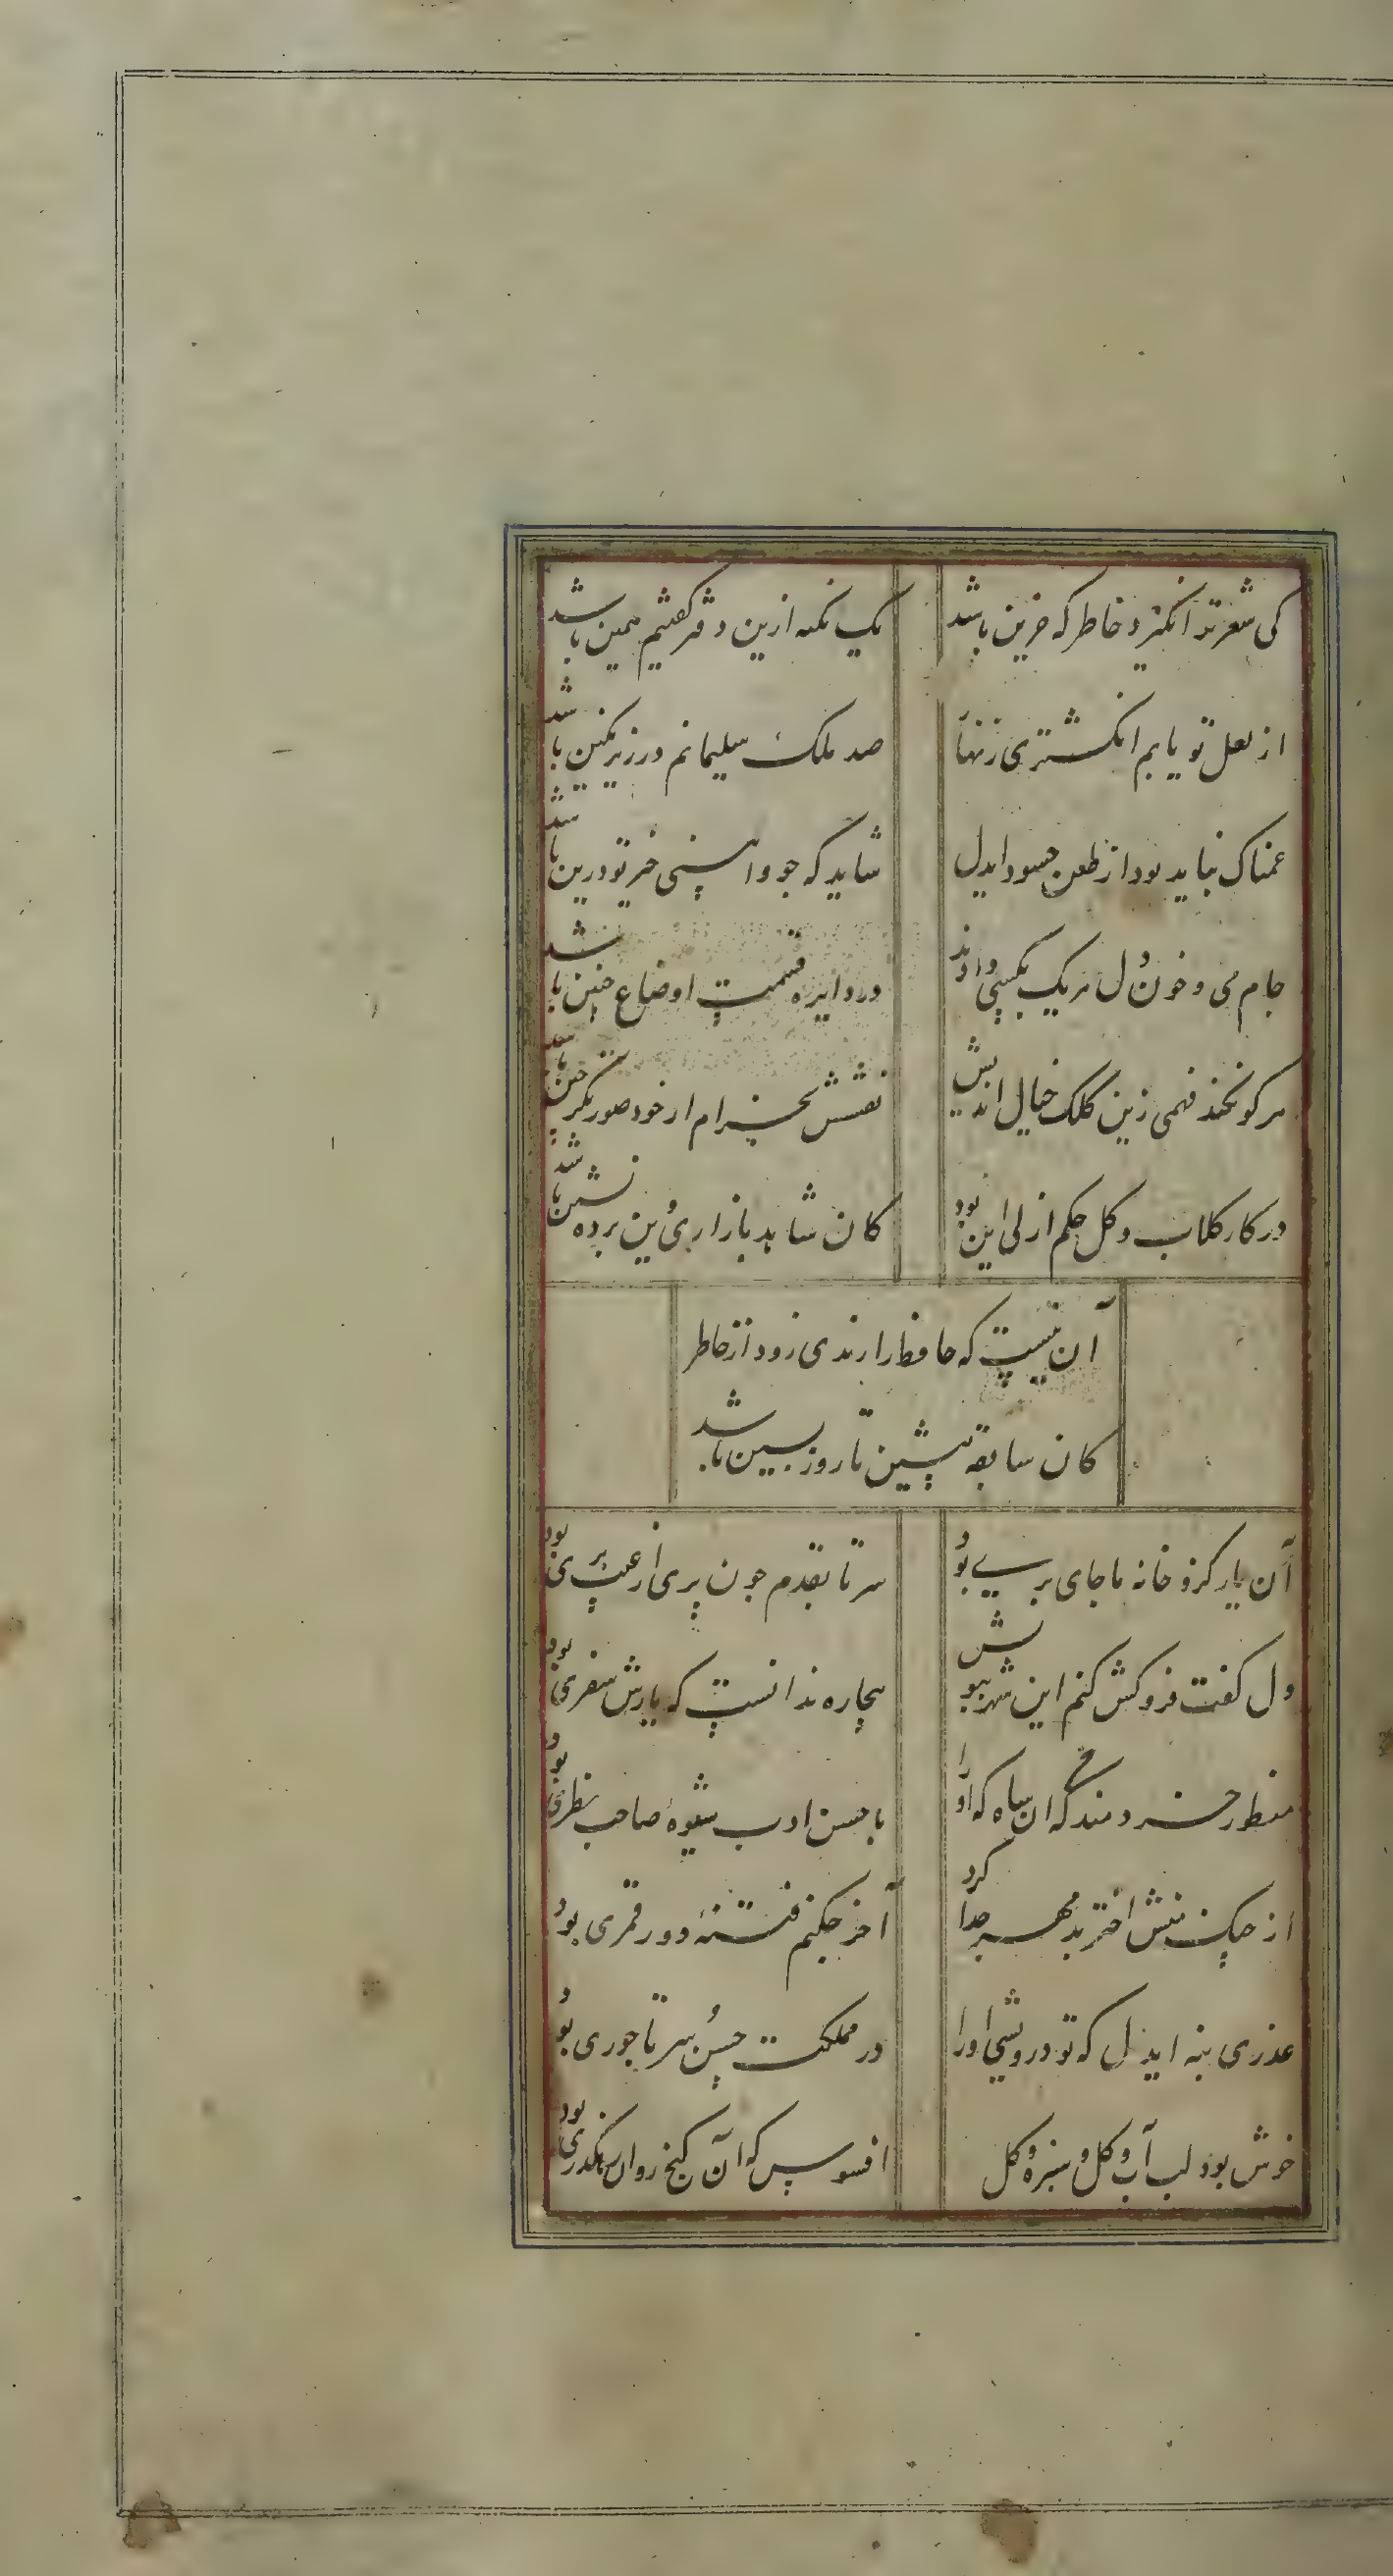 کی شعر تر انگیزد خاطر که حزین باشد
یک نکته ازین دفتر گفتیم همین باشد
از لعل تو یابم انگشتری زنهار
صد ملک سلیمانم در زیر نگین باشد
غمناک نباید بود از طعن حسود ایدل
شاید که چو وابینی خیر تو درین باشد
جام می و خون دل هر یک بکسی دادند
در دایره قسمت اوضاع چنین باشد
هرکو نکند فهمی زین کلک خیال اندیش
نقشش بخرام ار خود صورتگر چین باشد
در کار گلاب و گل حکم ازلی این بود
کان شاهد بازاری وین پرده نشین باشد
آن نیست که حافظ را رندی رود از خاطر
کان سابقه پیشین تا روز پسین باشد
آن یار کزو خانه ما جای پری بود
سر تا بقدم چون پری از عیب بری بود
دل گفت فروکش کنم این شهر ببویش
بیچاره ندانست که یارش سفری بود
منظور خردمند من آن ماه که او را
با حسن ادب شیوهٔ صاحب نظری بود
از چنگ منش اختر بدمهر جدا کرد
آخر چکنم فتنهٔ دور قمری بود
عذری بنه ایدل که تو درویشی او را
در مملکت حسن سر تاجوری بود
خوش بود لب آب و گل و سبزه و گل
افسوس که آن گنج روان رهگذری بود